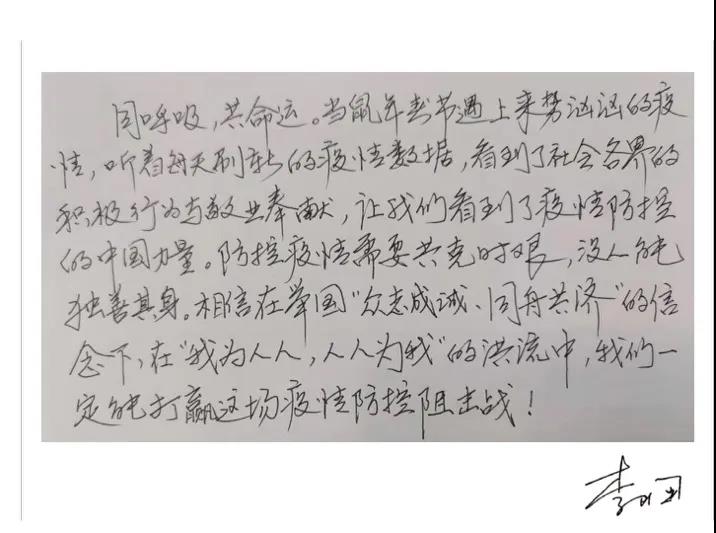 同呼吸，共命运。当鼠年春节遇上来势汹汹的疫
情，听着每天刷新的疫情数据，看到了社会各界的
积极行为与敬业奉献，让我们看到了疫情防控
的中国力量。防控疫情需要共克时艰，没人能
独善其身。相信在举国“众志成诚、同舟共济”的信
念下，在“我为人人，人人为我”的洪流中，我们一
定能打赢这场疫情防控阻击战！